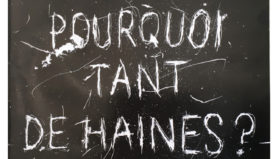 POURQUOI
TANT
DE HAINES ?